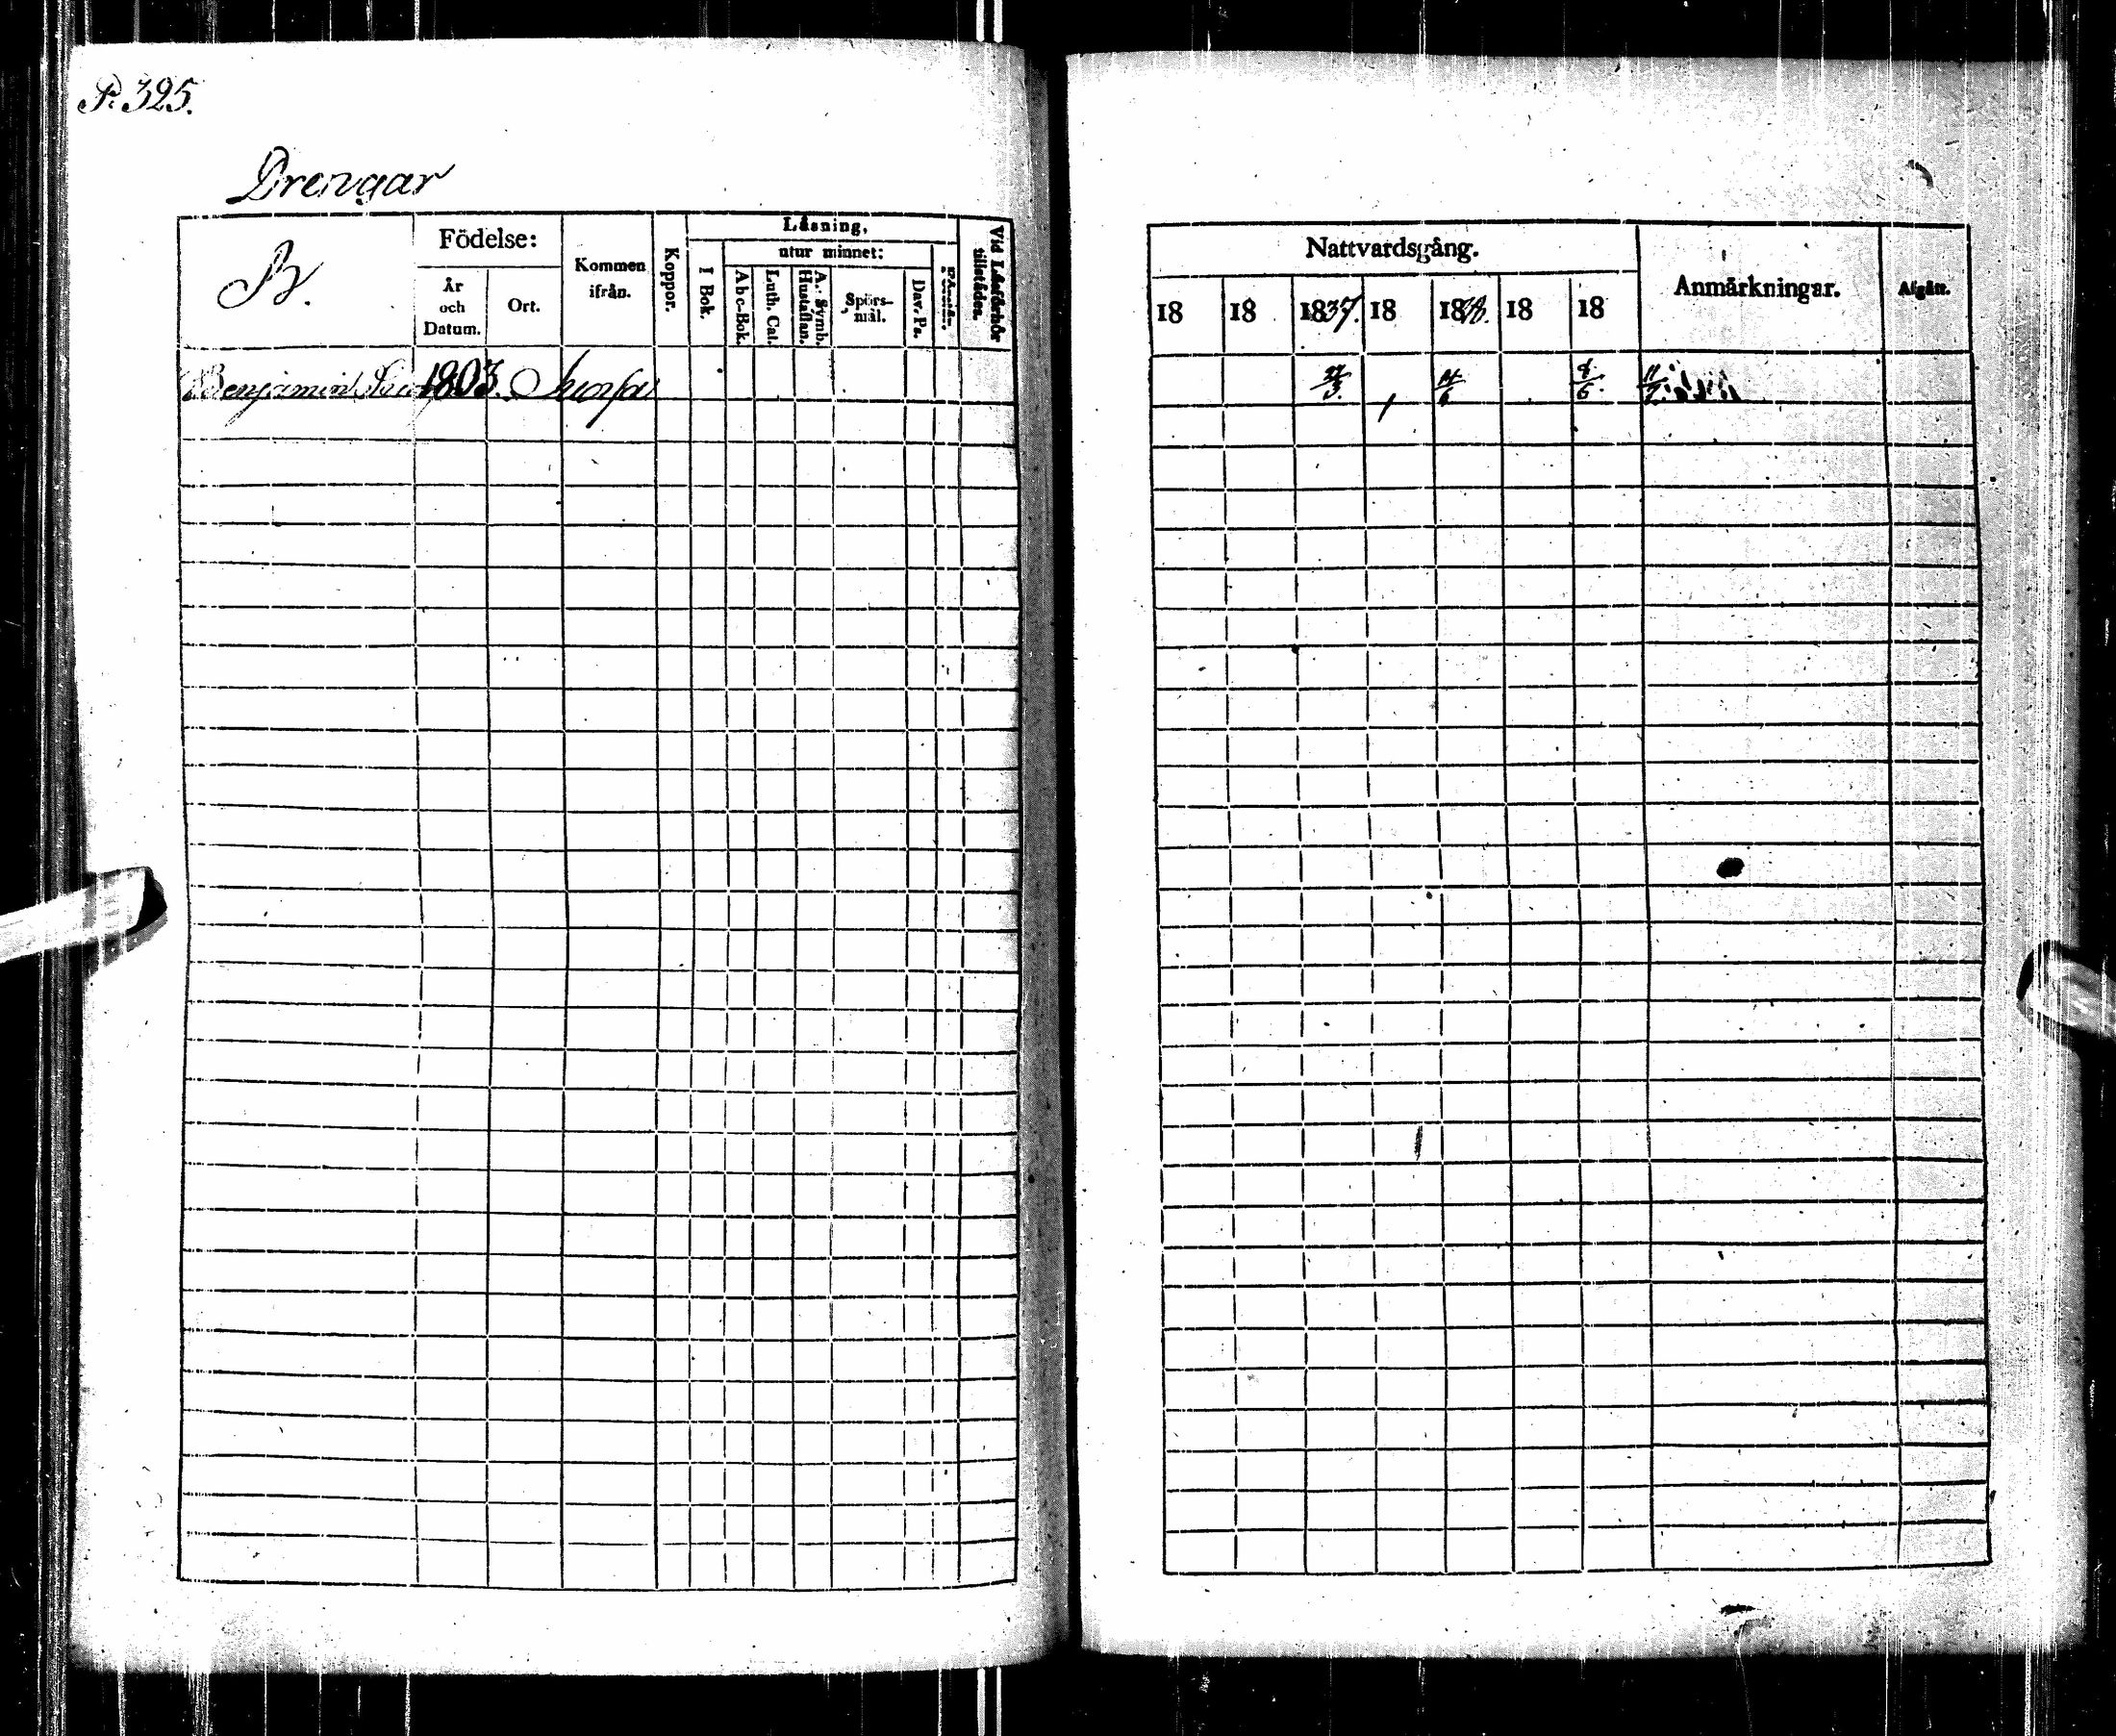 P. 325.
Drengar
B.
Födelse:
År och Datum.
Ort.
Kommen ifrån.
Koppor.
Läsning,
utur minnet:
I Bok.
Abc-Bok.
Luth. Cat.
A. Symb. Hustaflan.
Spörsmål.
Dav. Ps.
Vid Läsförhör tillstädes.
Benjamin 1803.
Nattvardsgång.
18 18 1837. 18 1838. 18 18
Anmärkningar.
Afgått.